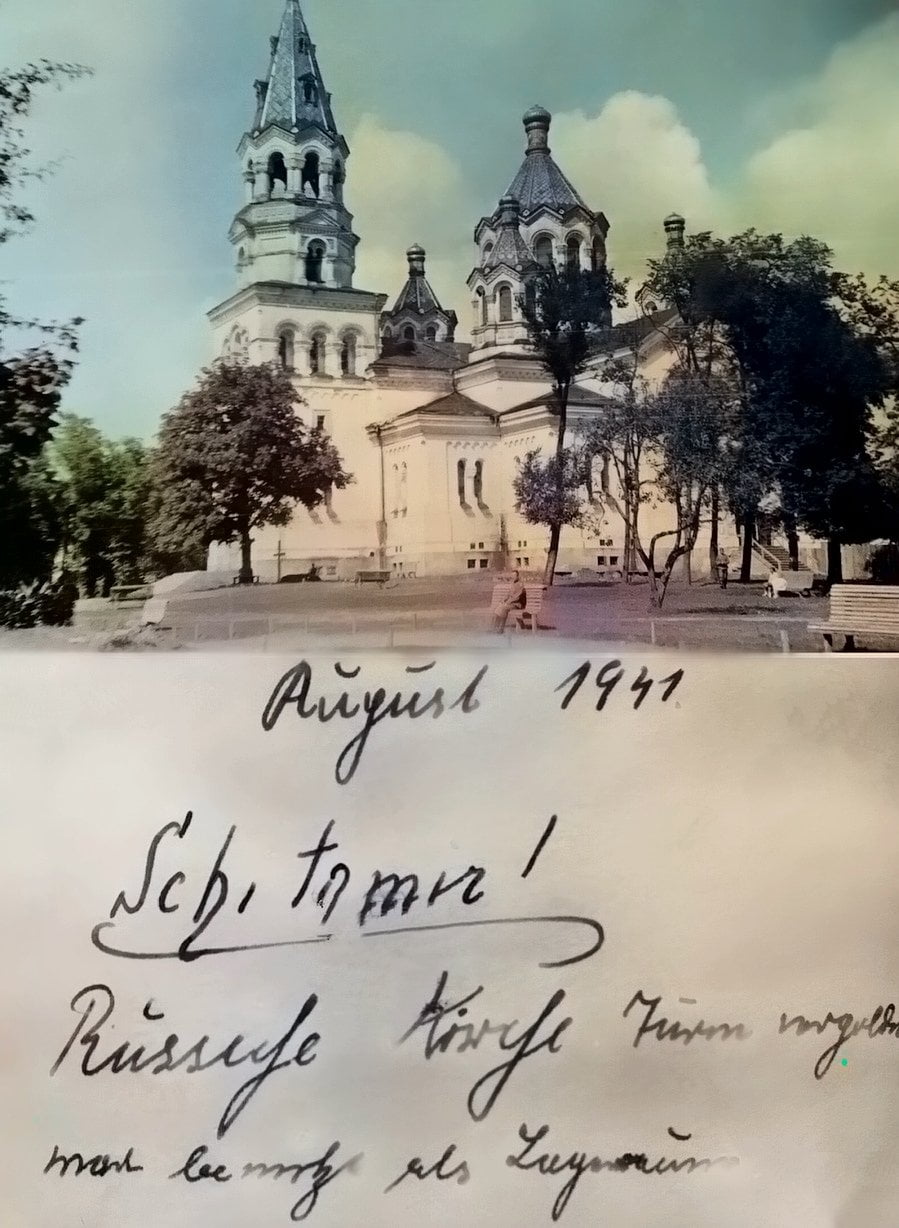 August 1941.
Schitomir!
Russische Kirche Turm vergolde
war benutzt als Lagerraum